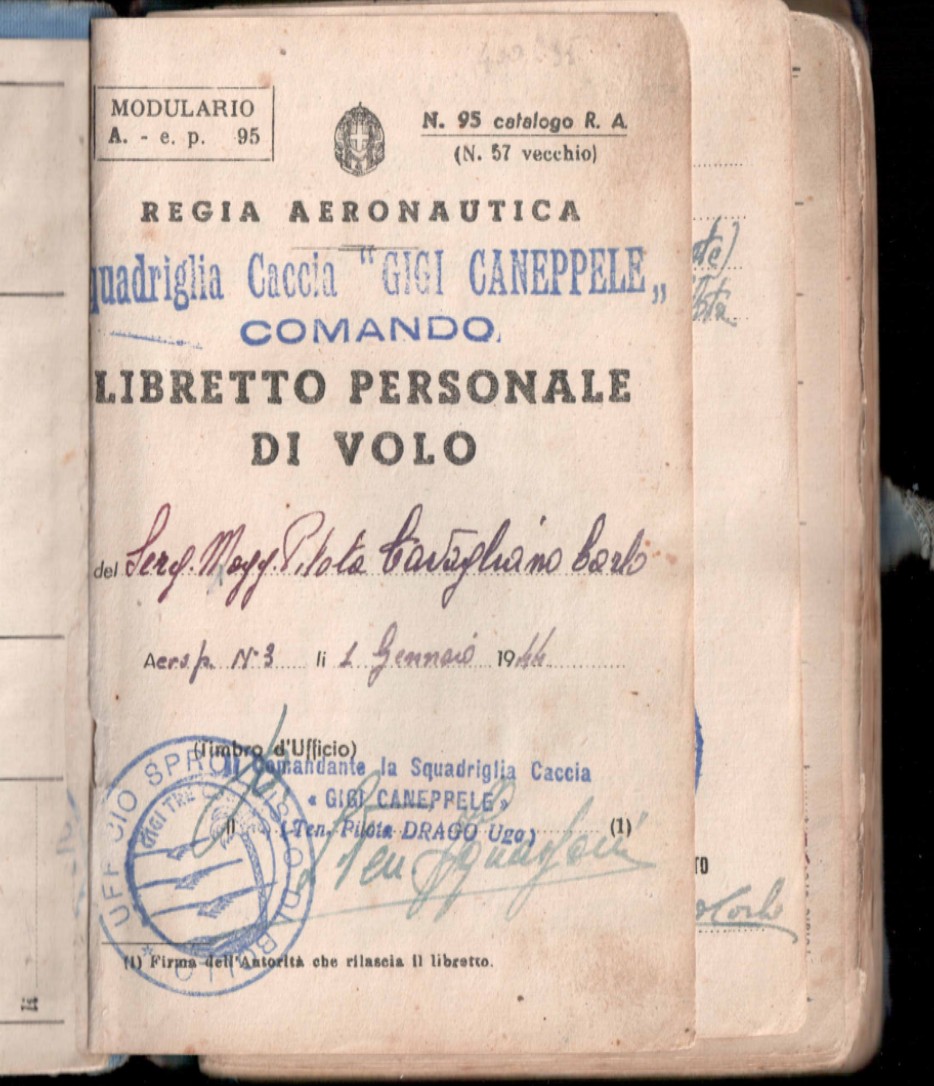 MODULARIO
A. - e. p. 95
N. 95 catalogo R. A.
(N. 57 vecchio)
REGIA AERONAUTICA
quadriglia Caccia "GIGI CANEPPELE„
COMANDO
LIBRETTO PERSONALE
DI VOLO
del Serg. Magg. Pilota Cavagliano Carlo
Aerop. N° 3 li 1 Gennaio 1944
(Timbro d'Ufficio)
Il Comandante la Squadriglia Caccia
« GIGI CANEPPELE »
Il (Ten. Pilota DRAGO Ugo) (1)
Ten
UFFICIO
GIGI TRE
(1) Firma dell'Autorità che rilascia il libretto.
TO
Carlo